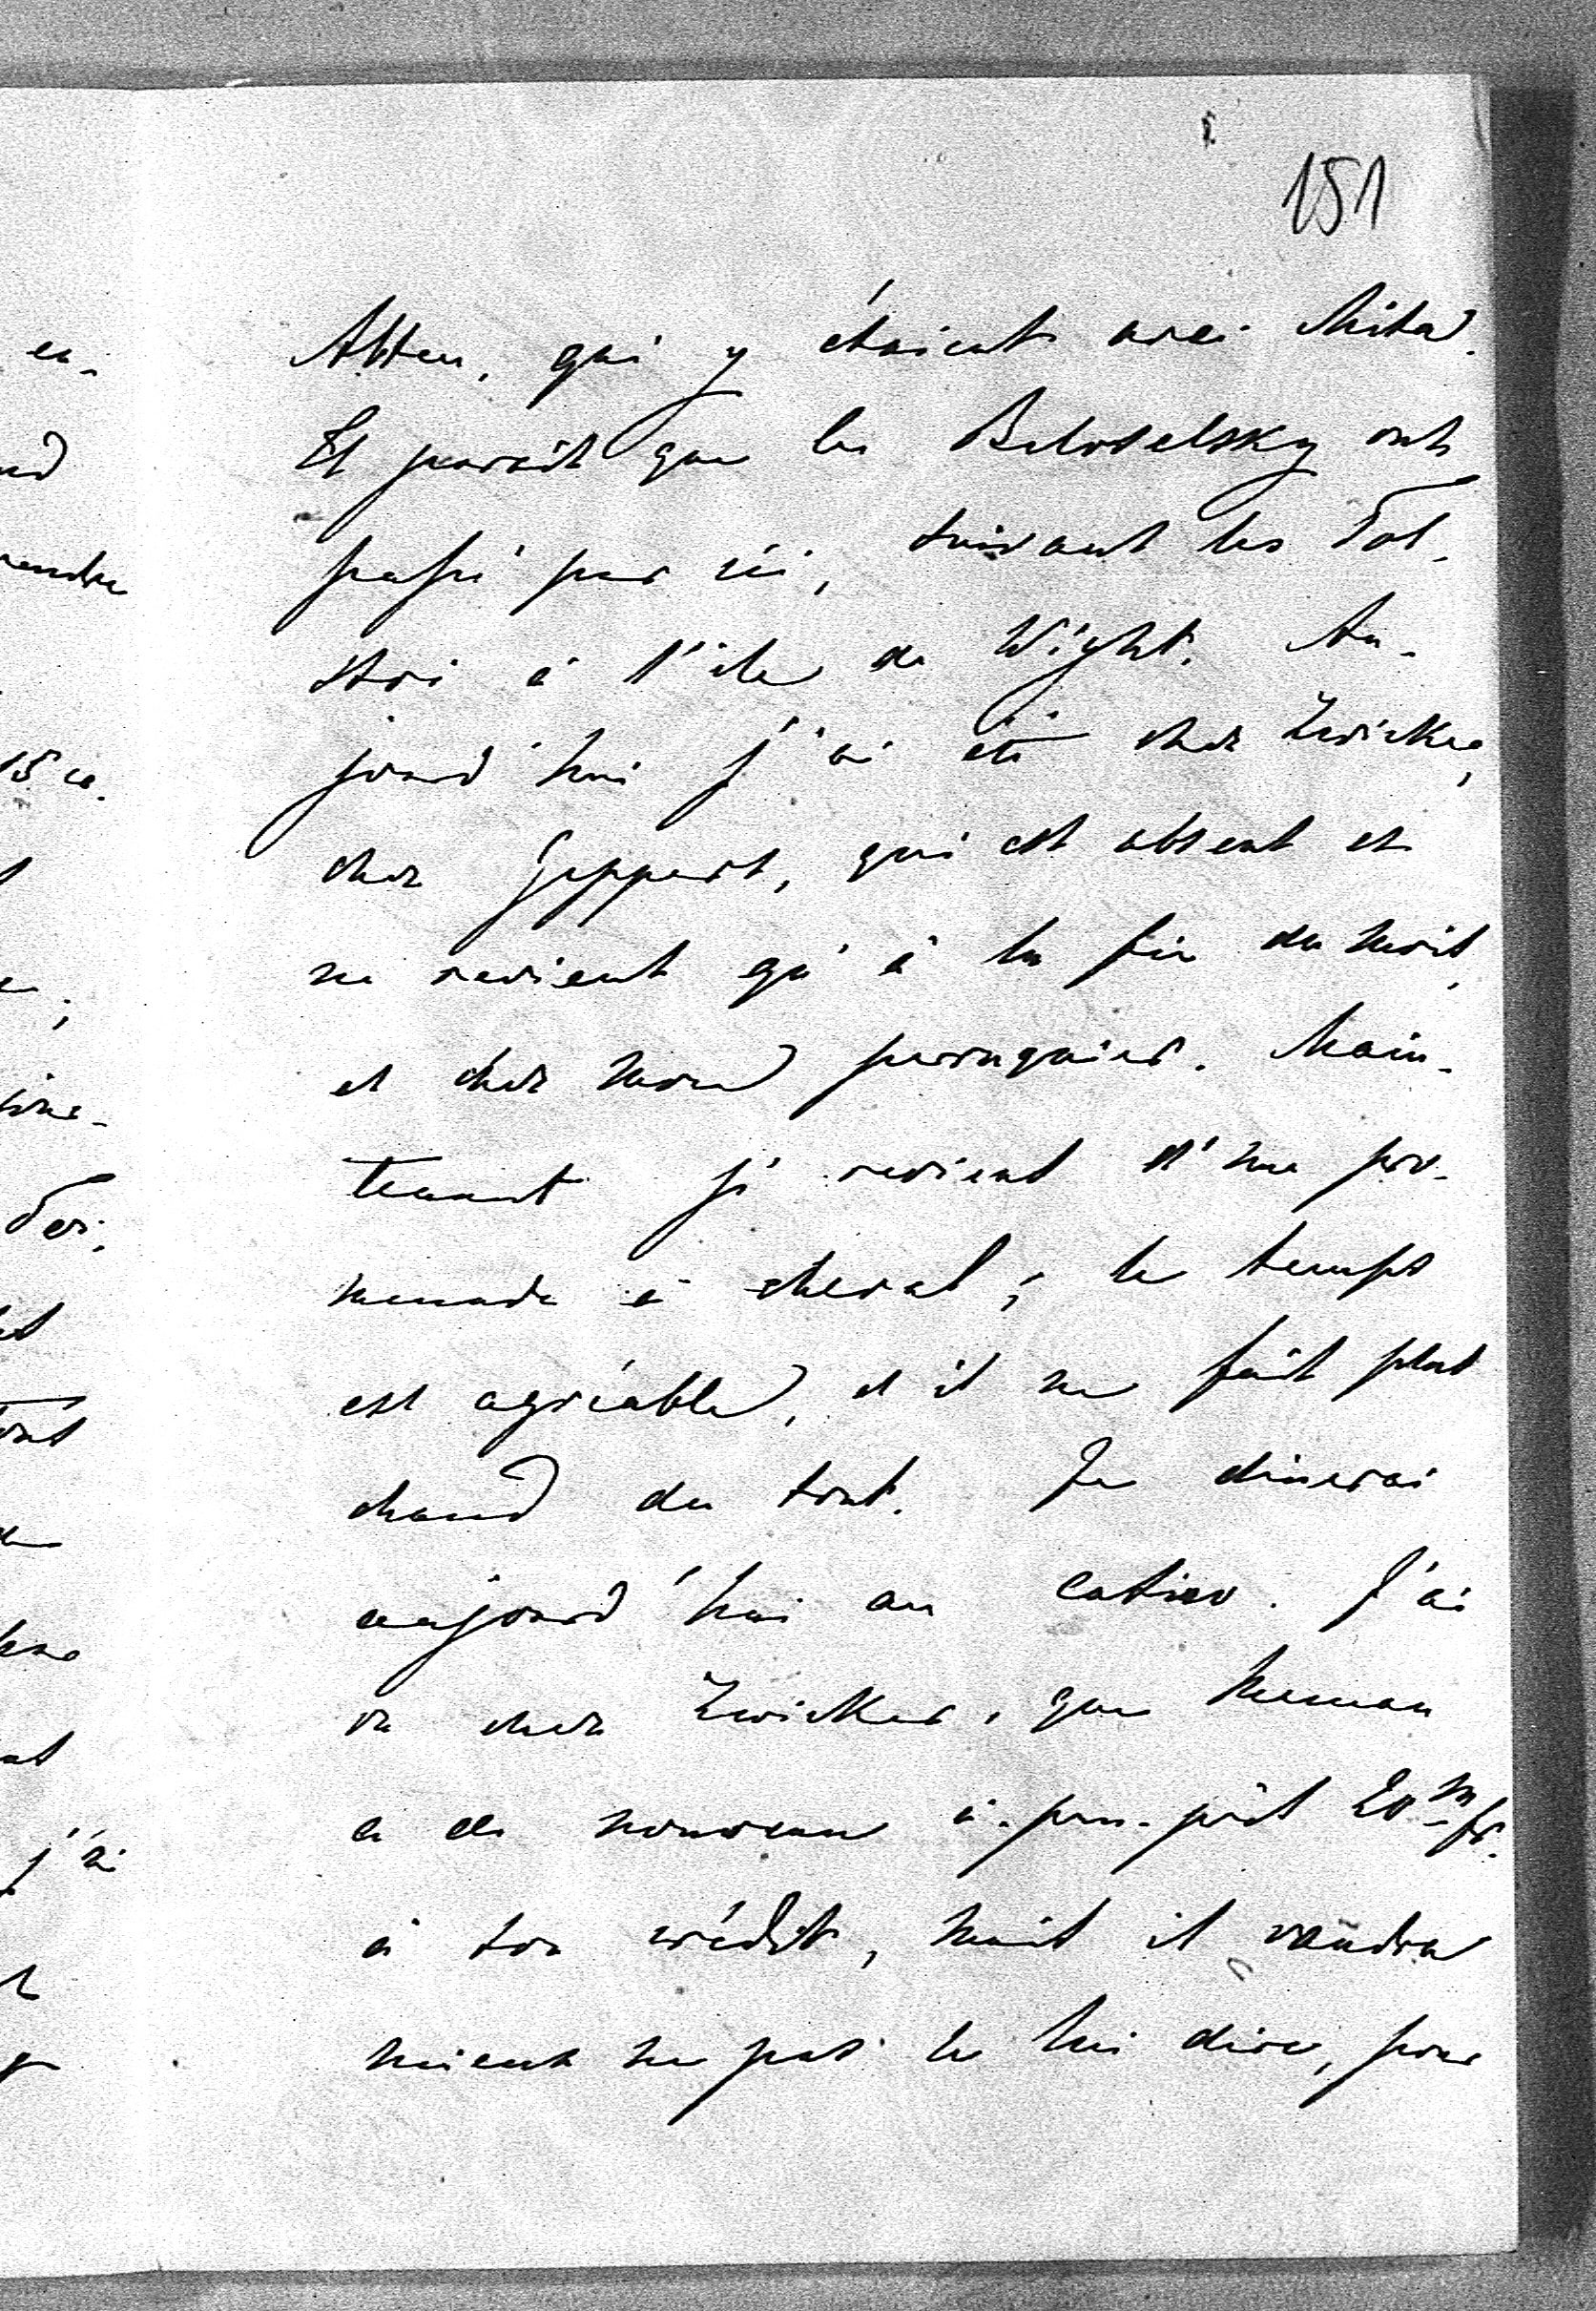 151
Abten, qui y étaient avec Mita.
Il parait que les Beloselsky ont
passé par ici, suivant les Tol-
stoi à l'ile de Wight. Au-
jourd'hui j'ai été chez Zwicker,
chez Geppert, qui est absent et
ne revient qu'à la fin du mois,
et chez mon perruquier. Main-
tenant je reviens d'une pro-
menade à cheval; le temps
est agréable, et il ne fait plus
chaud du tout. Je dinerai
aujourd'hui au casino. J'ai
vu chez Zwicker, que Maman
a de nouveau à-peu-près 20 m fr.
à son crédit, mais il vaudra
mieux ne pas le lui dire, pour
en-
15
j'ai